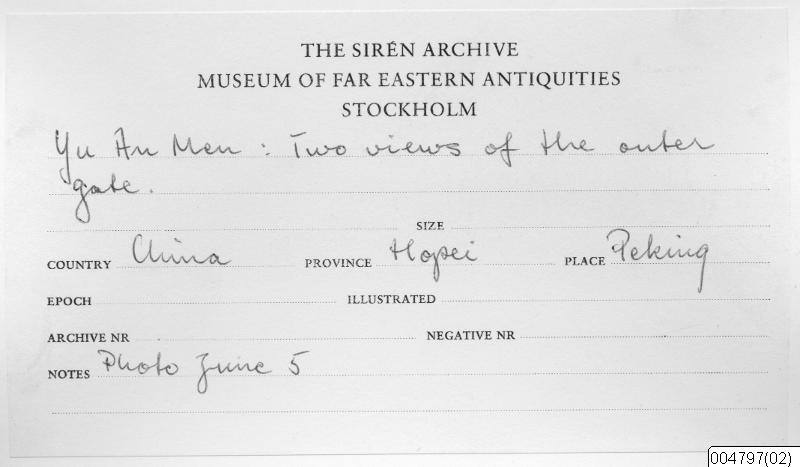 THE SIRÉN ARCHIVE
MUSEUM OF FAR EASTERN ANTIQUITIES
STOCKHOLM
Yu An Men : Two views of the outer
gate.
SIZE
COUNTRY China PROVINCE Hopei PLACE Peking
EPOCH ILLUSTRATED
ARCHIVE NR NEGATIVE NR
NOTES Photo June 5
004797(02)